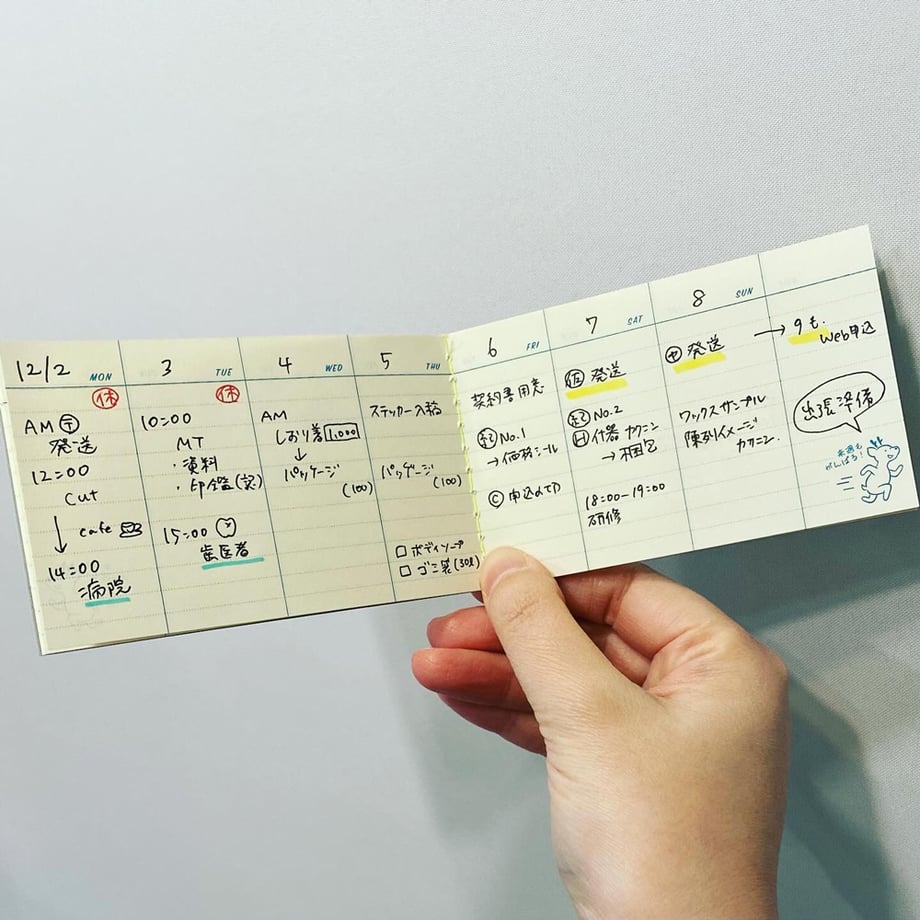 12/2 MON
休
AM 〒
発送
12:00
cut
cafe
14:00
病院
3 TUE
休
10:00
MT
・資料
・印鑑(家)
15:00
歯医者
4 WED
AM
しおり着 1,000
↓
パッケージ
(100)
5 THU
ステッカー入稿
パッケージ
(100)
□ ボディソープ
□ ゴミ袋(30ℓ)
6 FRI
契約書用意
No.1
→価格シール
Ⓒ 申込〆切
7 SAT
発送
No.2
Ⓗ什器 カクニン
→梱包
18:00-19:00
研修
8 SUN
発送
ワックスサンプル
陳列イメージ
カクニン
→ 9も.
Web申込
出張準備
来週も
がんばろ!